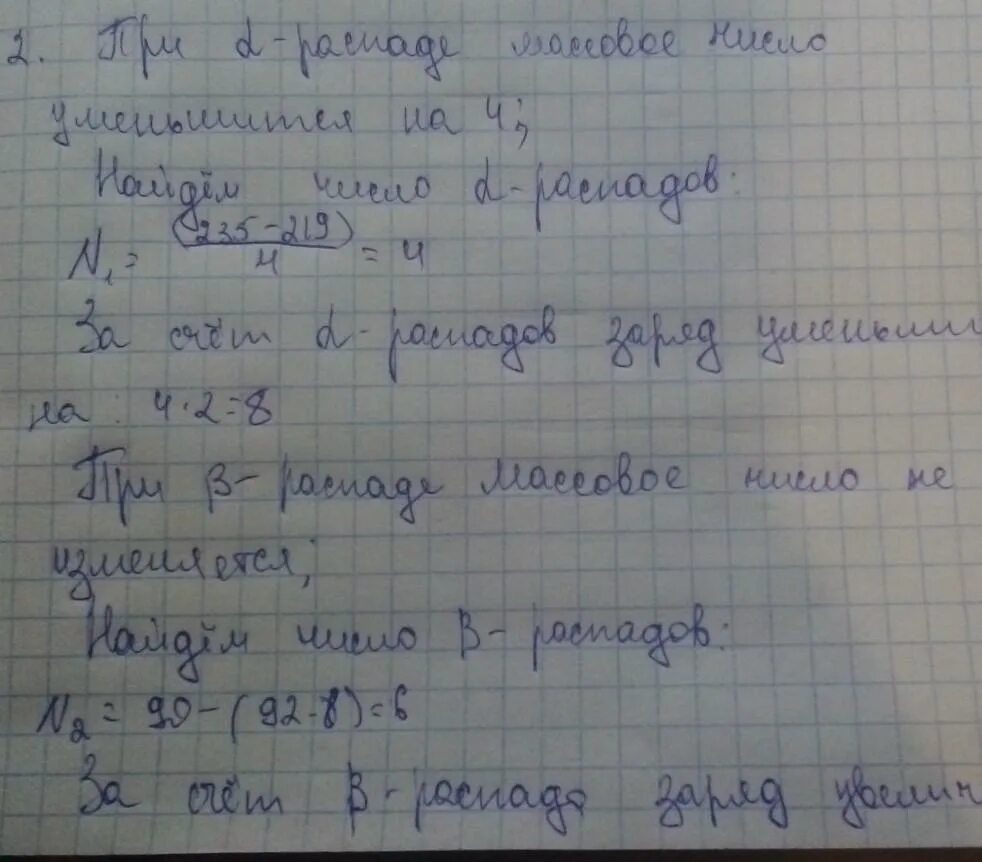 2. При α-распаде массовое число
уменьшится на 4;
Найдём число α-распадов:
N₁ = (235-219)/4 = 4
За счёт α-распадов заряд уменьши
на: 4·2=8
При β-распаде массовое число не
изменяется;
Найдём число β-распадов:
N₂ = 90-(92-8)=6
За счёт β-распада заряд увелич